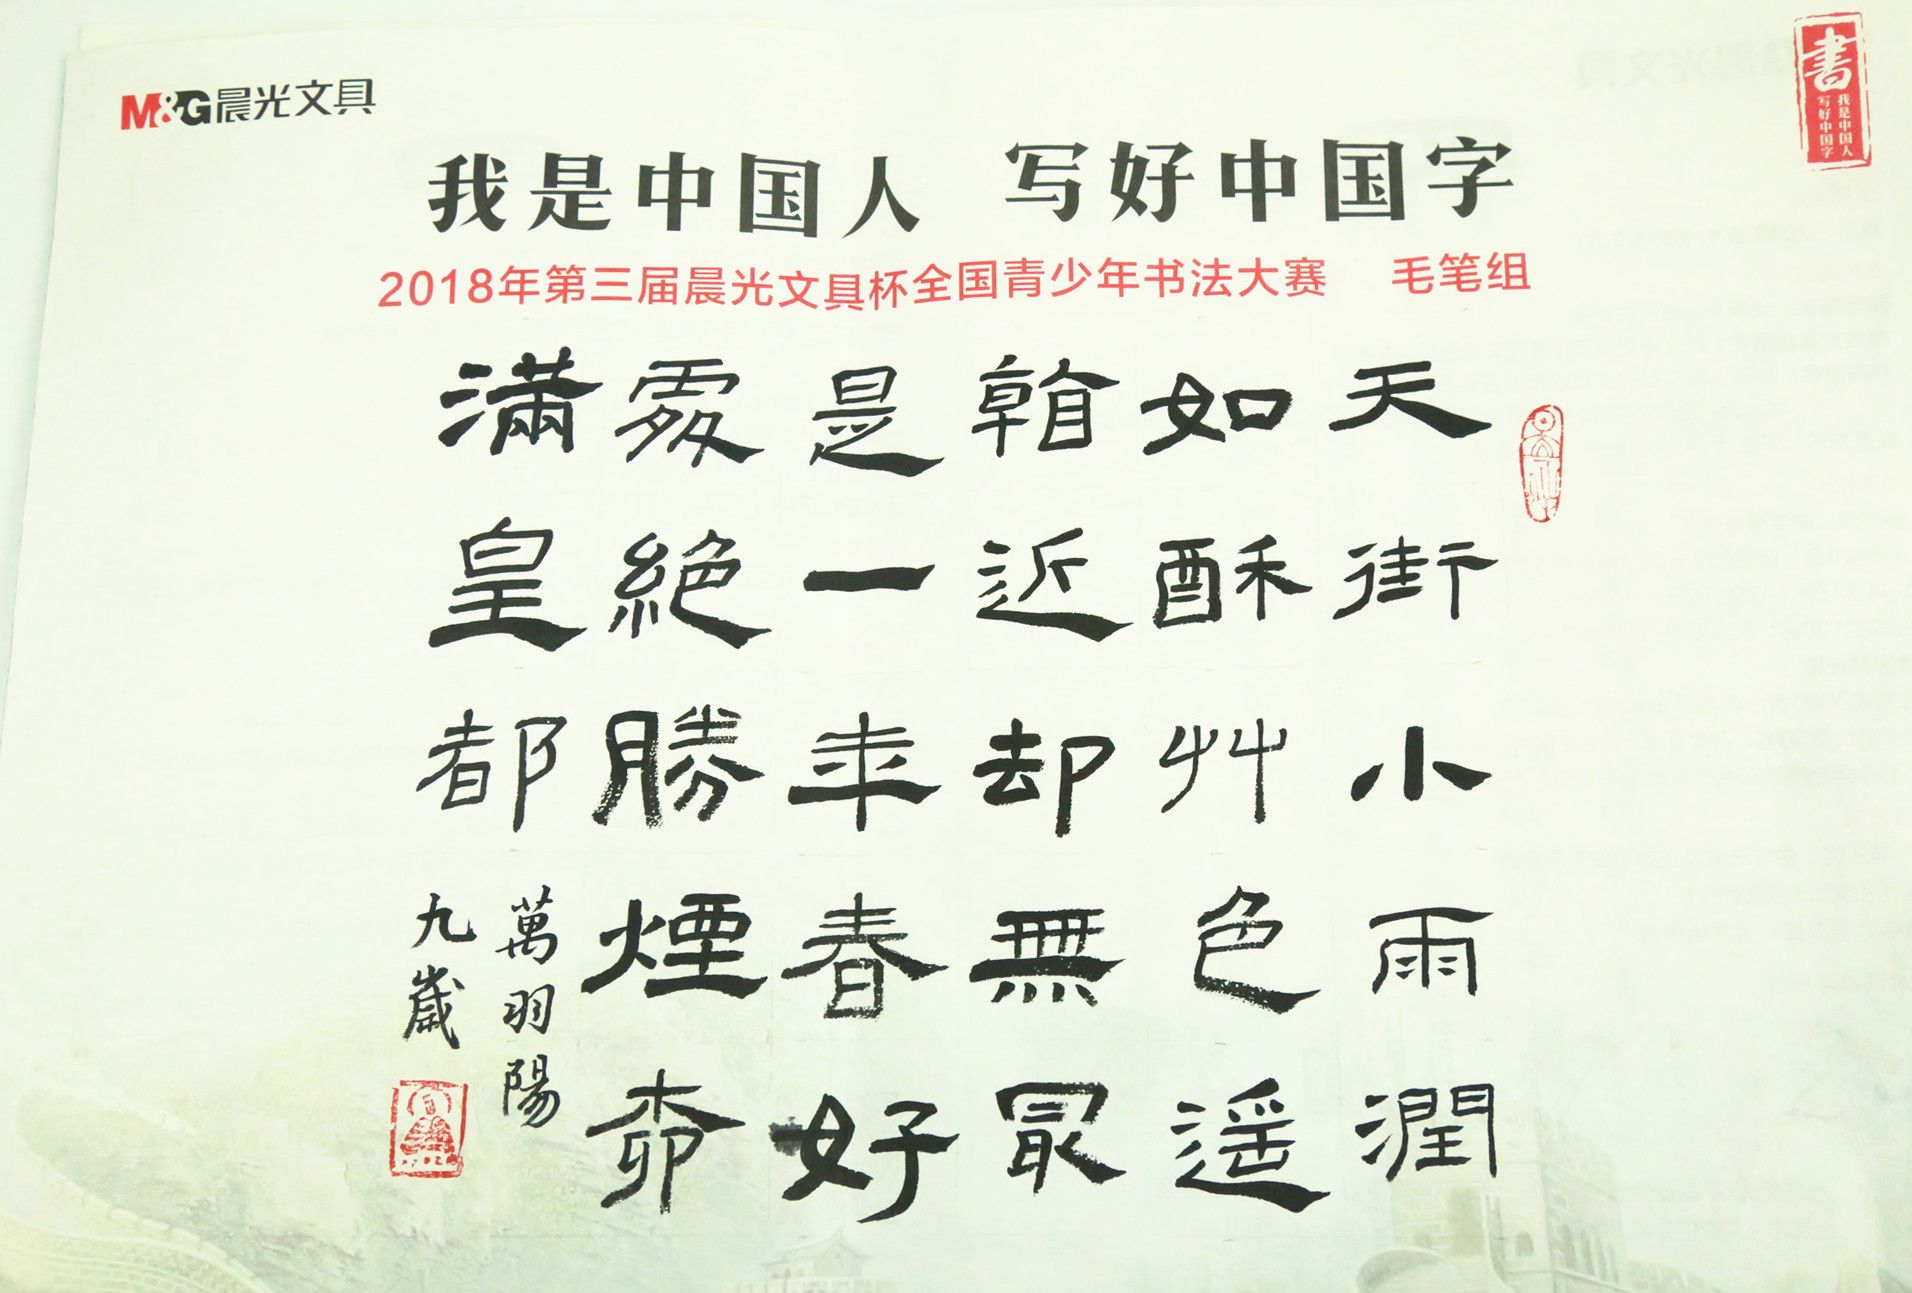 M&G晨光文具
書
我是中国人
写好中国字
我是中国人 写好中国字
2018年第三届晨光文具杯全国青少年书法大赛 毛笔组
天街小雨潤
如酥艸色遥
看近却無最
是一年春好
處絕勝煙桺
滿皇都
萬羽陽
九歲